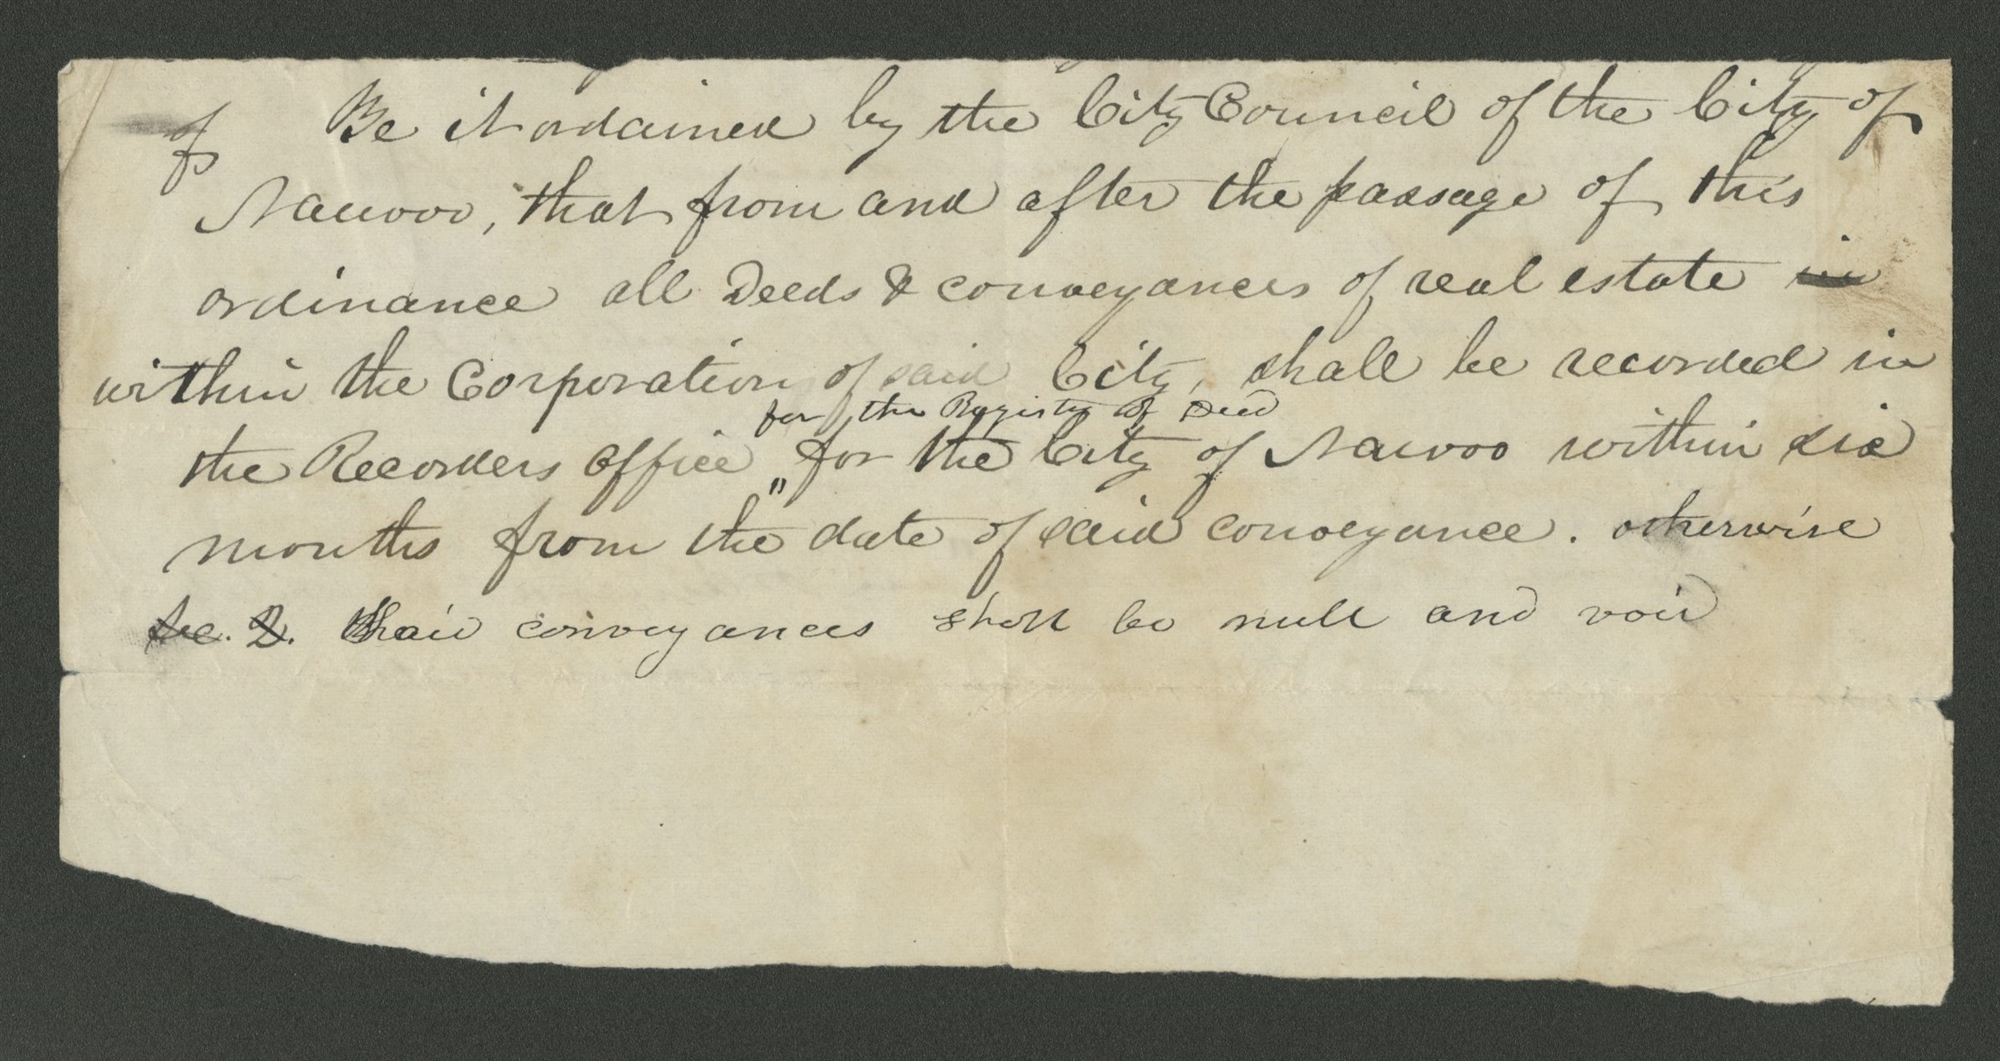 of Be it ordained by the City Council of the City of
Nauvoo, that from and after the passage of this
ordinance all Deeds & conveyances of real estate in
within the Corporation of said City, shall be recorded in
for the Registry of Deed
the Recorders office " for the City of Nauvoo within six
months from the date of said conveyance. otherwise
Sec. 2. Said conveyances shall be null and void